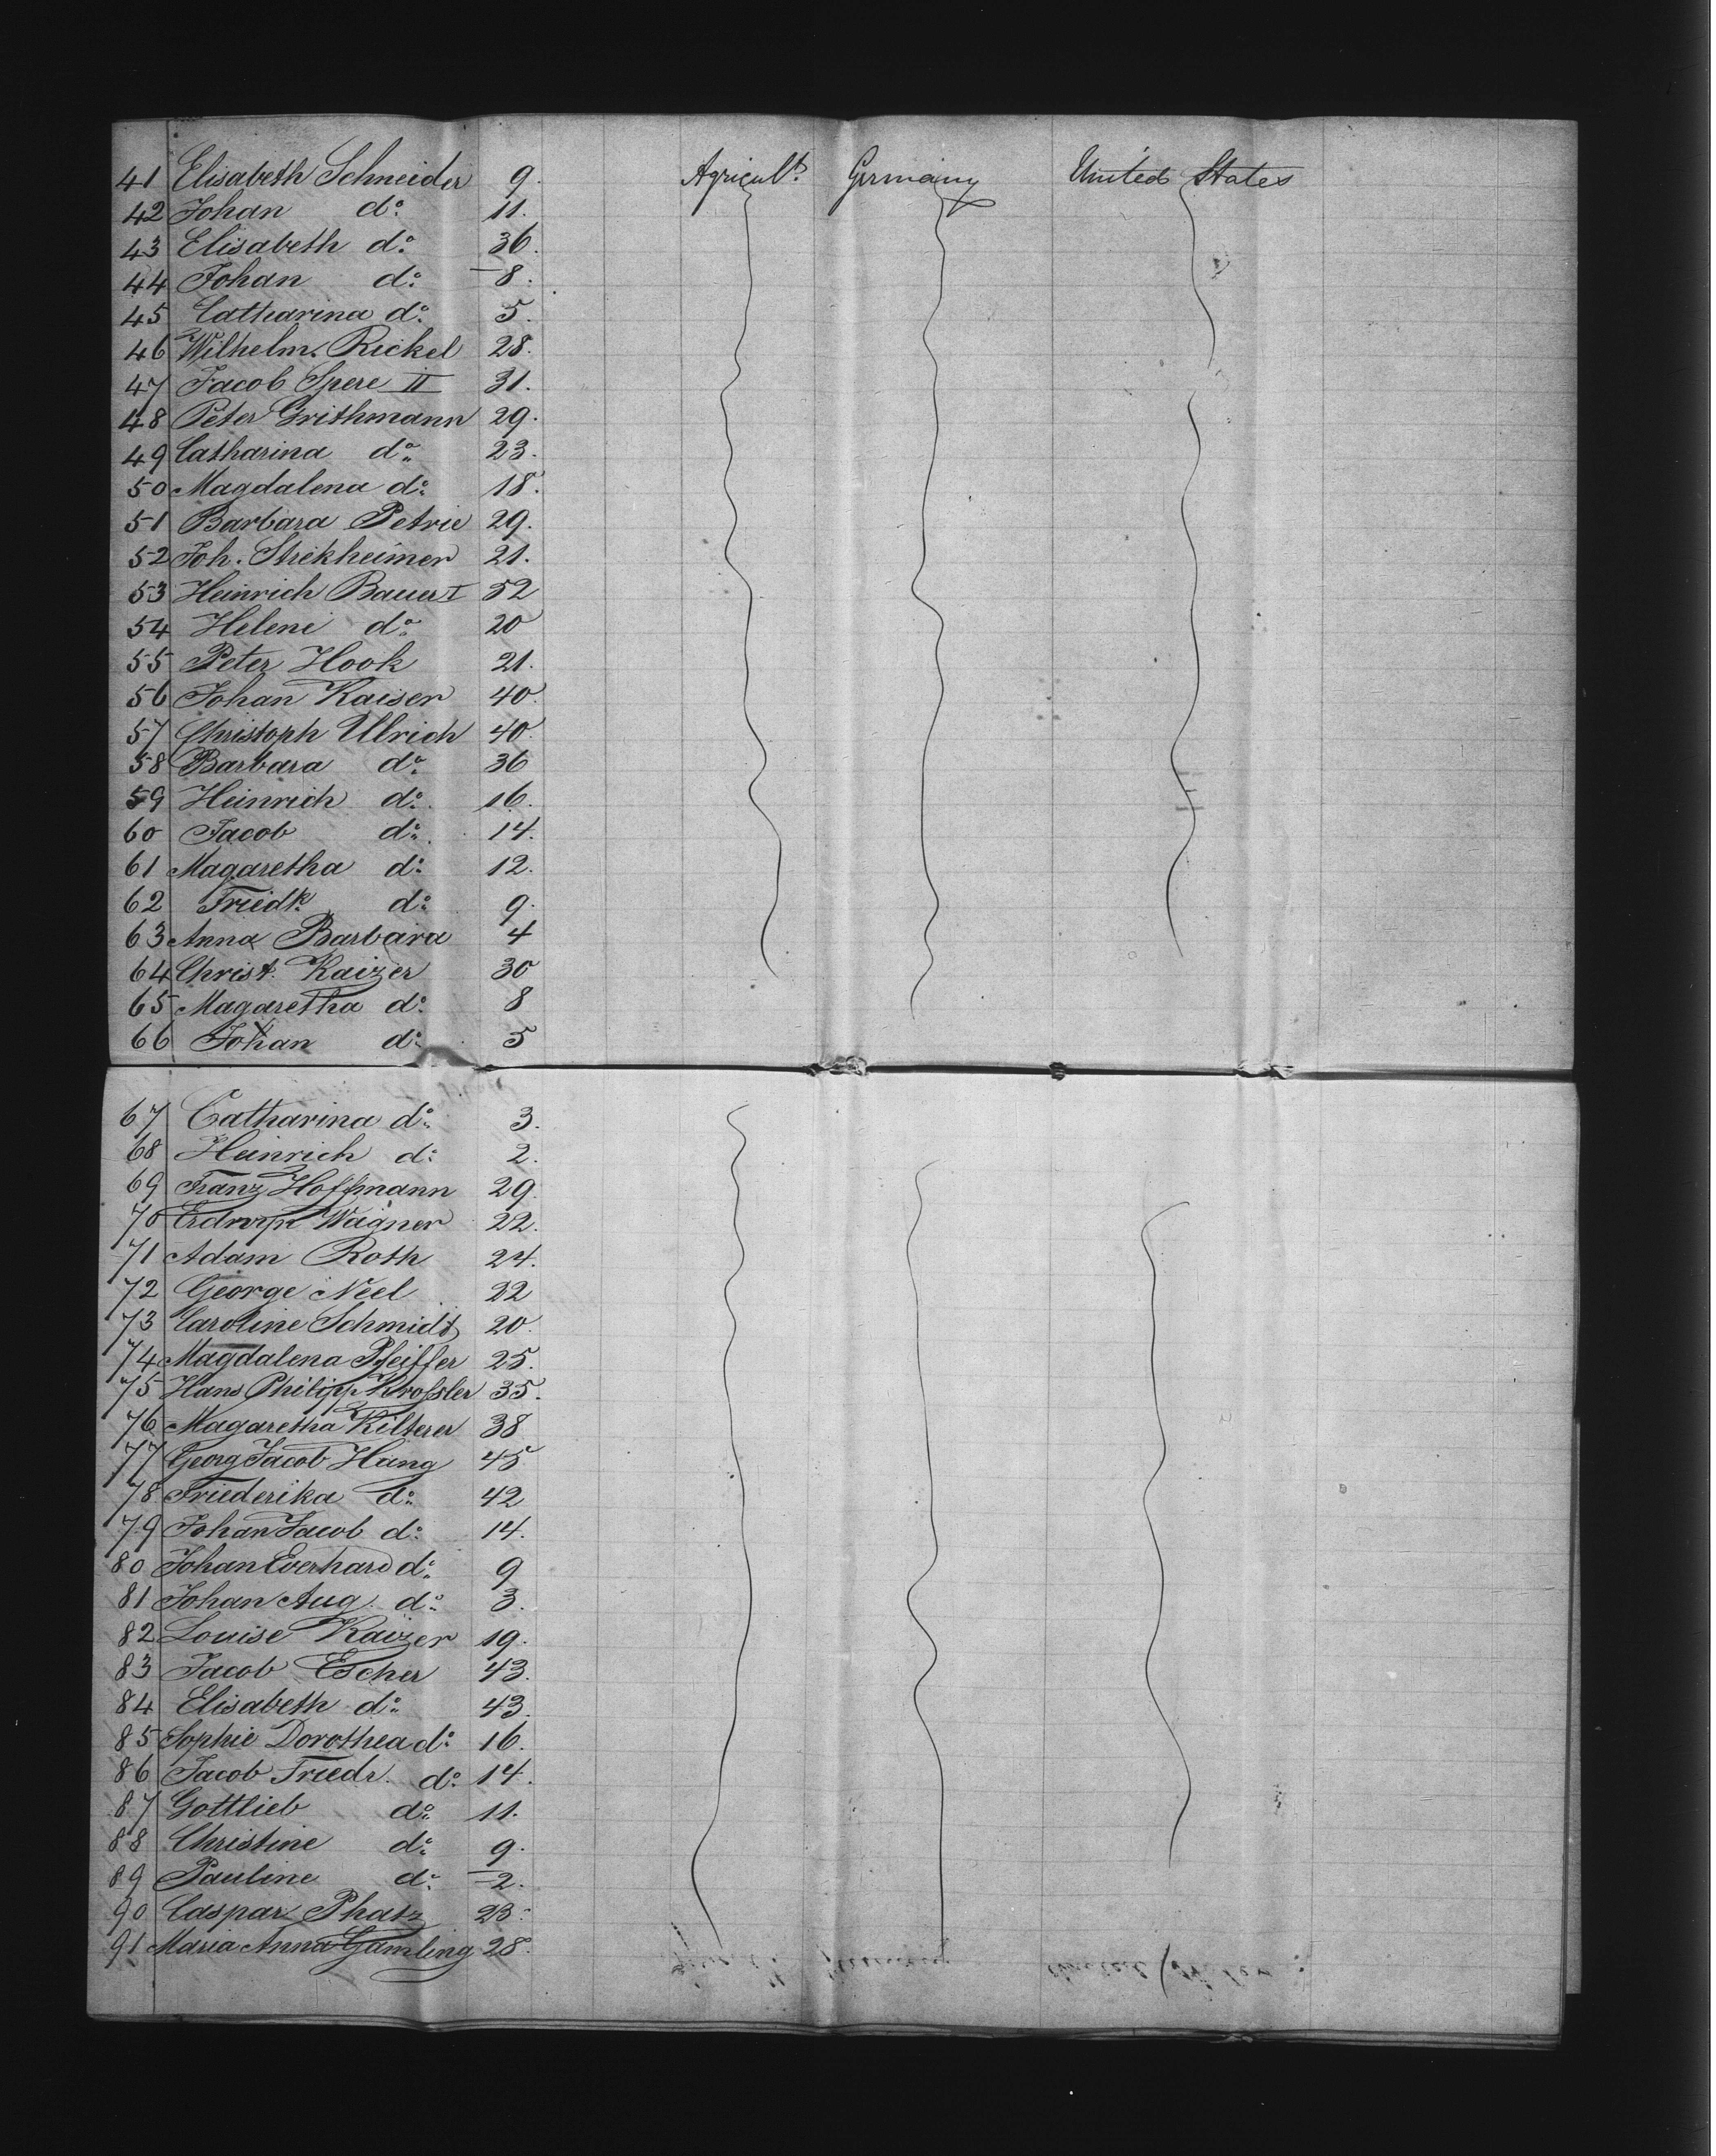 41 Elisabeth Schneider 9. Agricult. Germany United States
42 Johan do. 11.
43 Elisabeth do. 36.
44 Johan do. 8.
45 Catharina do. 5.
46 Wilhelm. Rickel 28.
47 Jacob Spere II 31.
48 Peter Grithmann 29.
49 Catharina do. 23.
50 Magdalena do. 18.
51 Barbara Petrie 29.
52 Joh. Strekheimer 21.
53 Heinrich Bauer I 52
54 Heleni do. 20
55 Peter Hook 21.
56 Johan Kaiser 40.
57 Christoph Ulbrich 40.
58 Barbara do. 36
59 Heinrich do. 16.
60 Jacob do. 14.
61 Magaretha do. 12.
62 Friedk. do. 9.
63 Anna Barbara 4
64 Christ. Kaizer 30
65 Magaretha do. 8
66 Johan do. 5
67 Catharina do. 3.
68 Heinrich do. 2.
69 Franz Hoffmann 29.
70 Wagner 22.
71 Adam Roth 24.
72 George Neel 22
73 Caroline Schmidt 20.
74 Magdalena Pfeiffer 25.
75 Hans Philipp 35.
76 Magaretha Kilterer 38
77 Georg Jacob Haug 45
78 Friederika do. 42
79 Johan Jacob do. 14.
80 Johan Everhard do. 9
81 Johan Aug. do. 3.
82 Louise Kaizer 19.
83 Jacob Escher 43.
84 Elisabeth do. 43.
85 Sophie Dorothea do. 16.
86 Jacob Friedr. do. 14.
87 Gottlieb do. 11.
88 Christine do. 9.
89 Pauline do. 2.
90 Caspar Phatz 23.
91 Maria Anna Gamling 28.